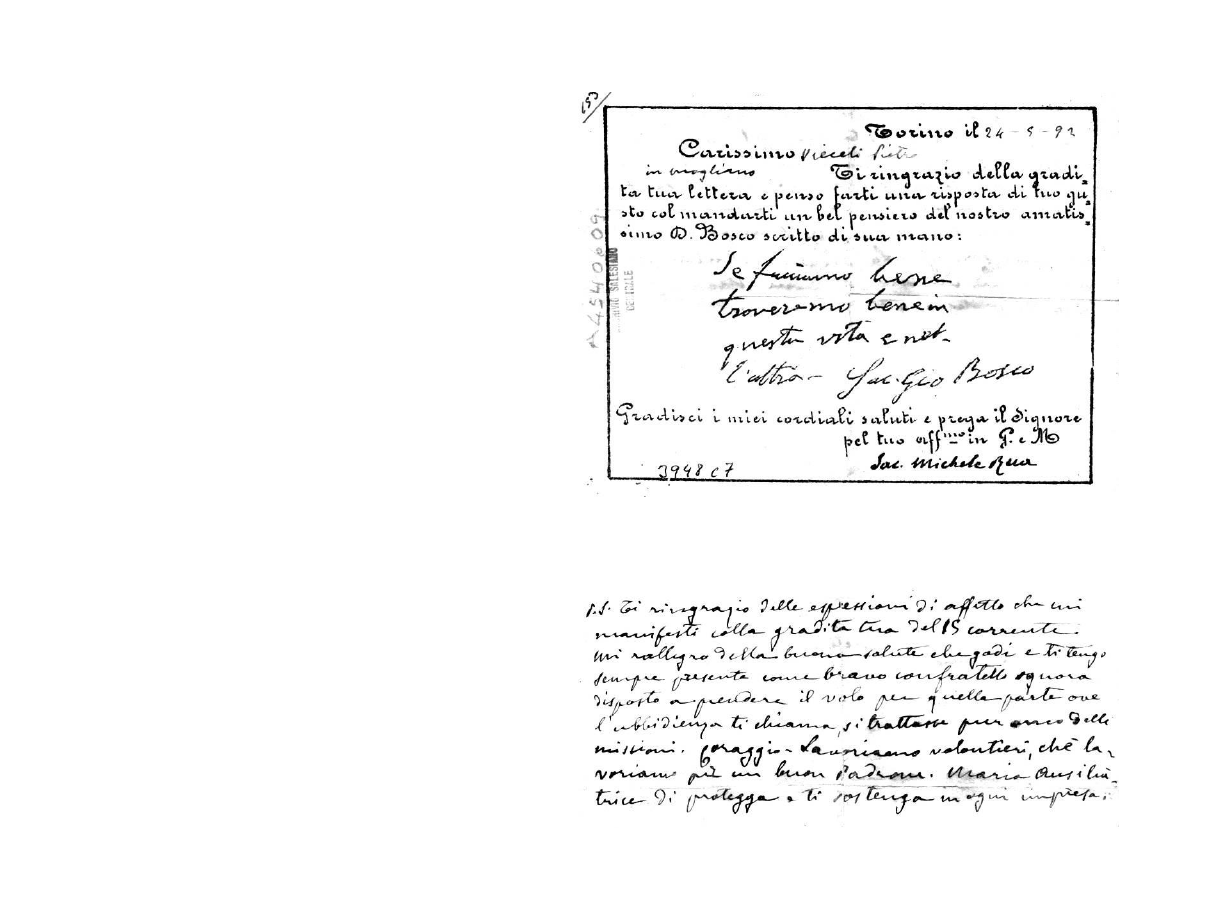 Torino il 24 - 5 - 92
Carissimo Vieceli Pietro
in Mogliano Ti ringrazio della gradi=
ta tua lettera e penso farti una risposta di tuo gu=
sto col mandarti un bel pensiero del nostro amatis=
simo D. Bosco scritto di sua mano:
Se facciamo bene
troveremo bene in
questa vita e nel-
l'altra - Sac. Gio Bosco
Gradisci i miei cordiali saluti e prega il Signore
pel tuo aff.mo in G. e M
Sac. Michele Rua
3948 C7
A4540809
SALESIANO
CENTRALE
P.S. Ti ringrazio delle espressioni di affetto che mi
manifesti colla gradita tua del 15 corrente.
Mi rallegro della buona salute che godi e ti tengo
sempre presente come bravo confratello ognora
disposto a prendere il volo per quella parte ove
l'ubbidienza ti chiama, si trattasse pur anco delle
missioni. Coraggio - Lavoriamo volontieri, chè la-
voriamo per un buon Padrone. Maria Ausilia-
trice di protegga e ti sostenga in ogni impresa.